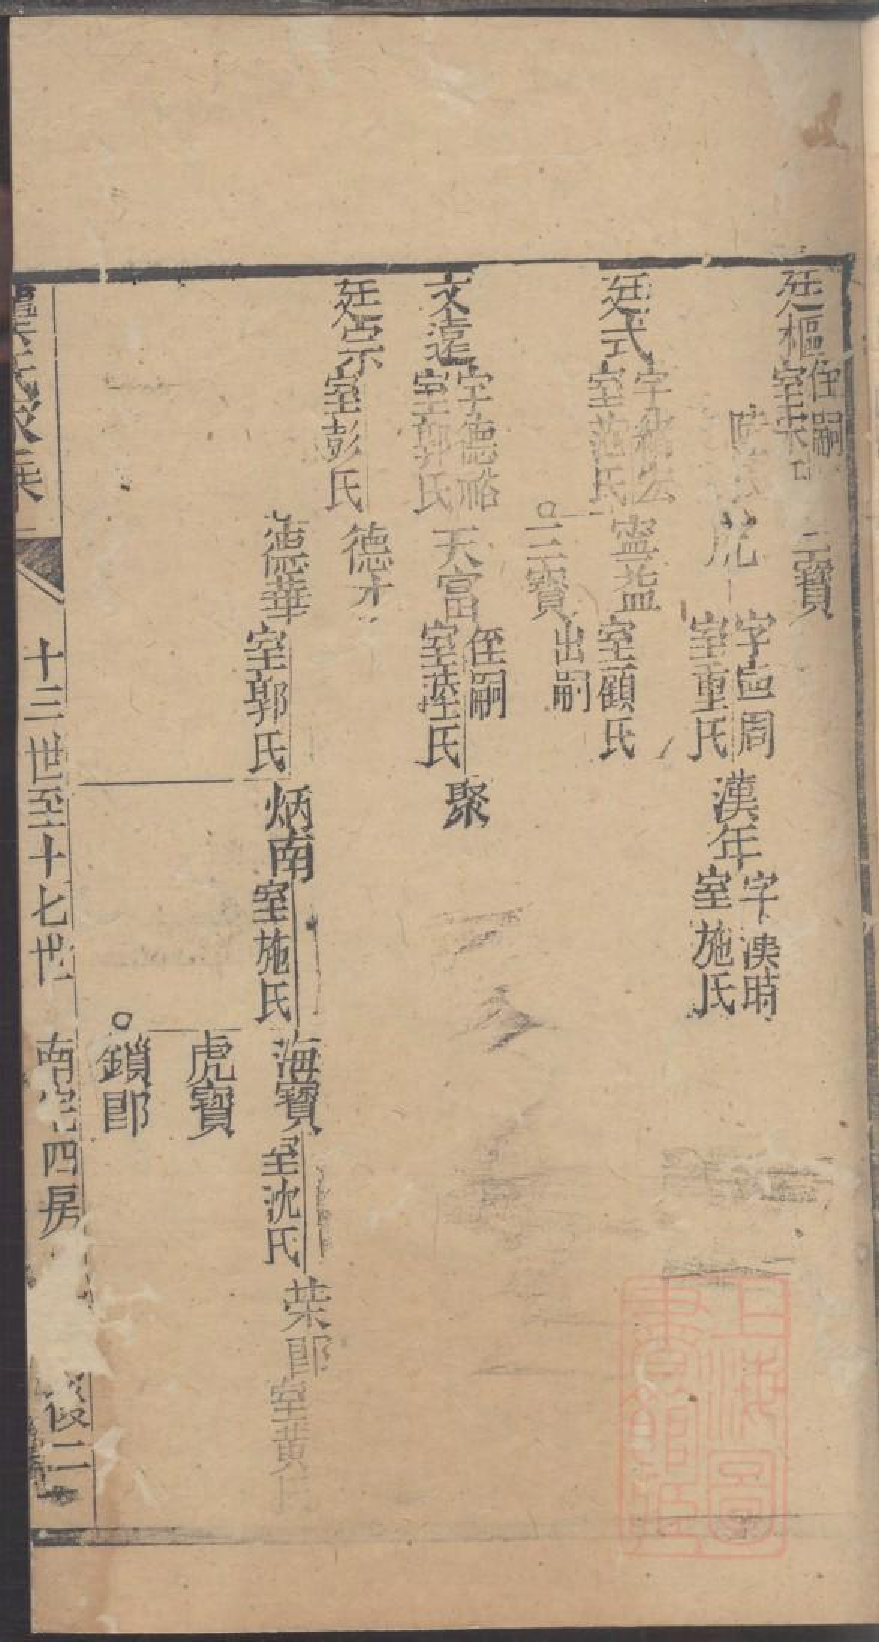 廷樞 侄嗣 室宋氏
三寶
虎 字 周 室重氏
漢年 字漢時 室施氏
廷式 字 室范氏
寧益 室顧氏
三寶 出嗣
文遠 字德裕 室郭氏
天富 侄嗣 室陸氏
聚
廷宗 室彭氏
德才
德華 室郭氏
炳南 室施氏
海寶 室沈氏
荣郎 室黄氏
虎寶
鎖郎
氏家乘
十三世至十七世 南宅四房
二
上海圖書館藏